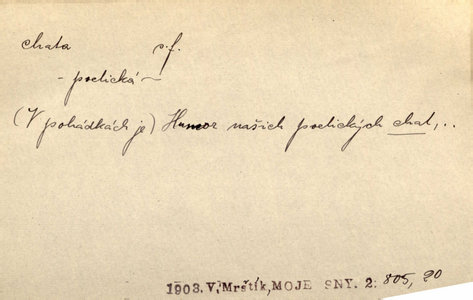 chata s.f.
- poetická ~
(V pohádkách je) Humor našich poetických chat,..
1903. V. Mrštík, MOJE SNY. 2. 805, 20